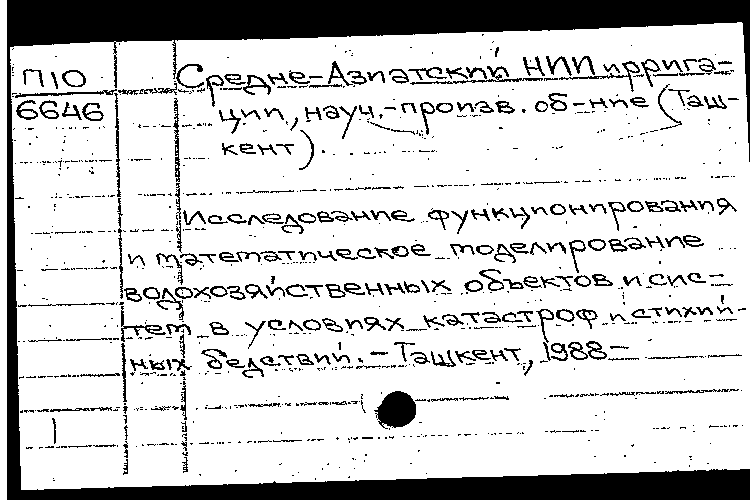 П10
6646
Средне-Азиатский НИИ иррига-
ции, науч.-произв. об-ние (Таш-
кент).
Исследование функционирования
и математическое моделирование
водохозяйственных объектов и сис-
тем в условиях катастроф и стихий-
ных бедствий. – Ташкент, 1988 –